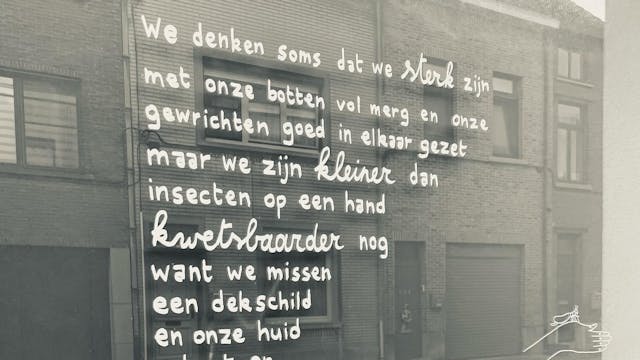 We denken soms dat we sterk zijn
met onze botten vol merg en onze
gewrichten goed in elkaar gezet
maar we zijn kleiner dan
insecten op een hand
kwetsbaarder nog
want we missen
een dekschild
en onze huid